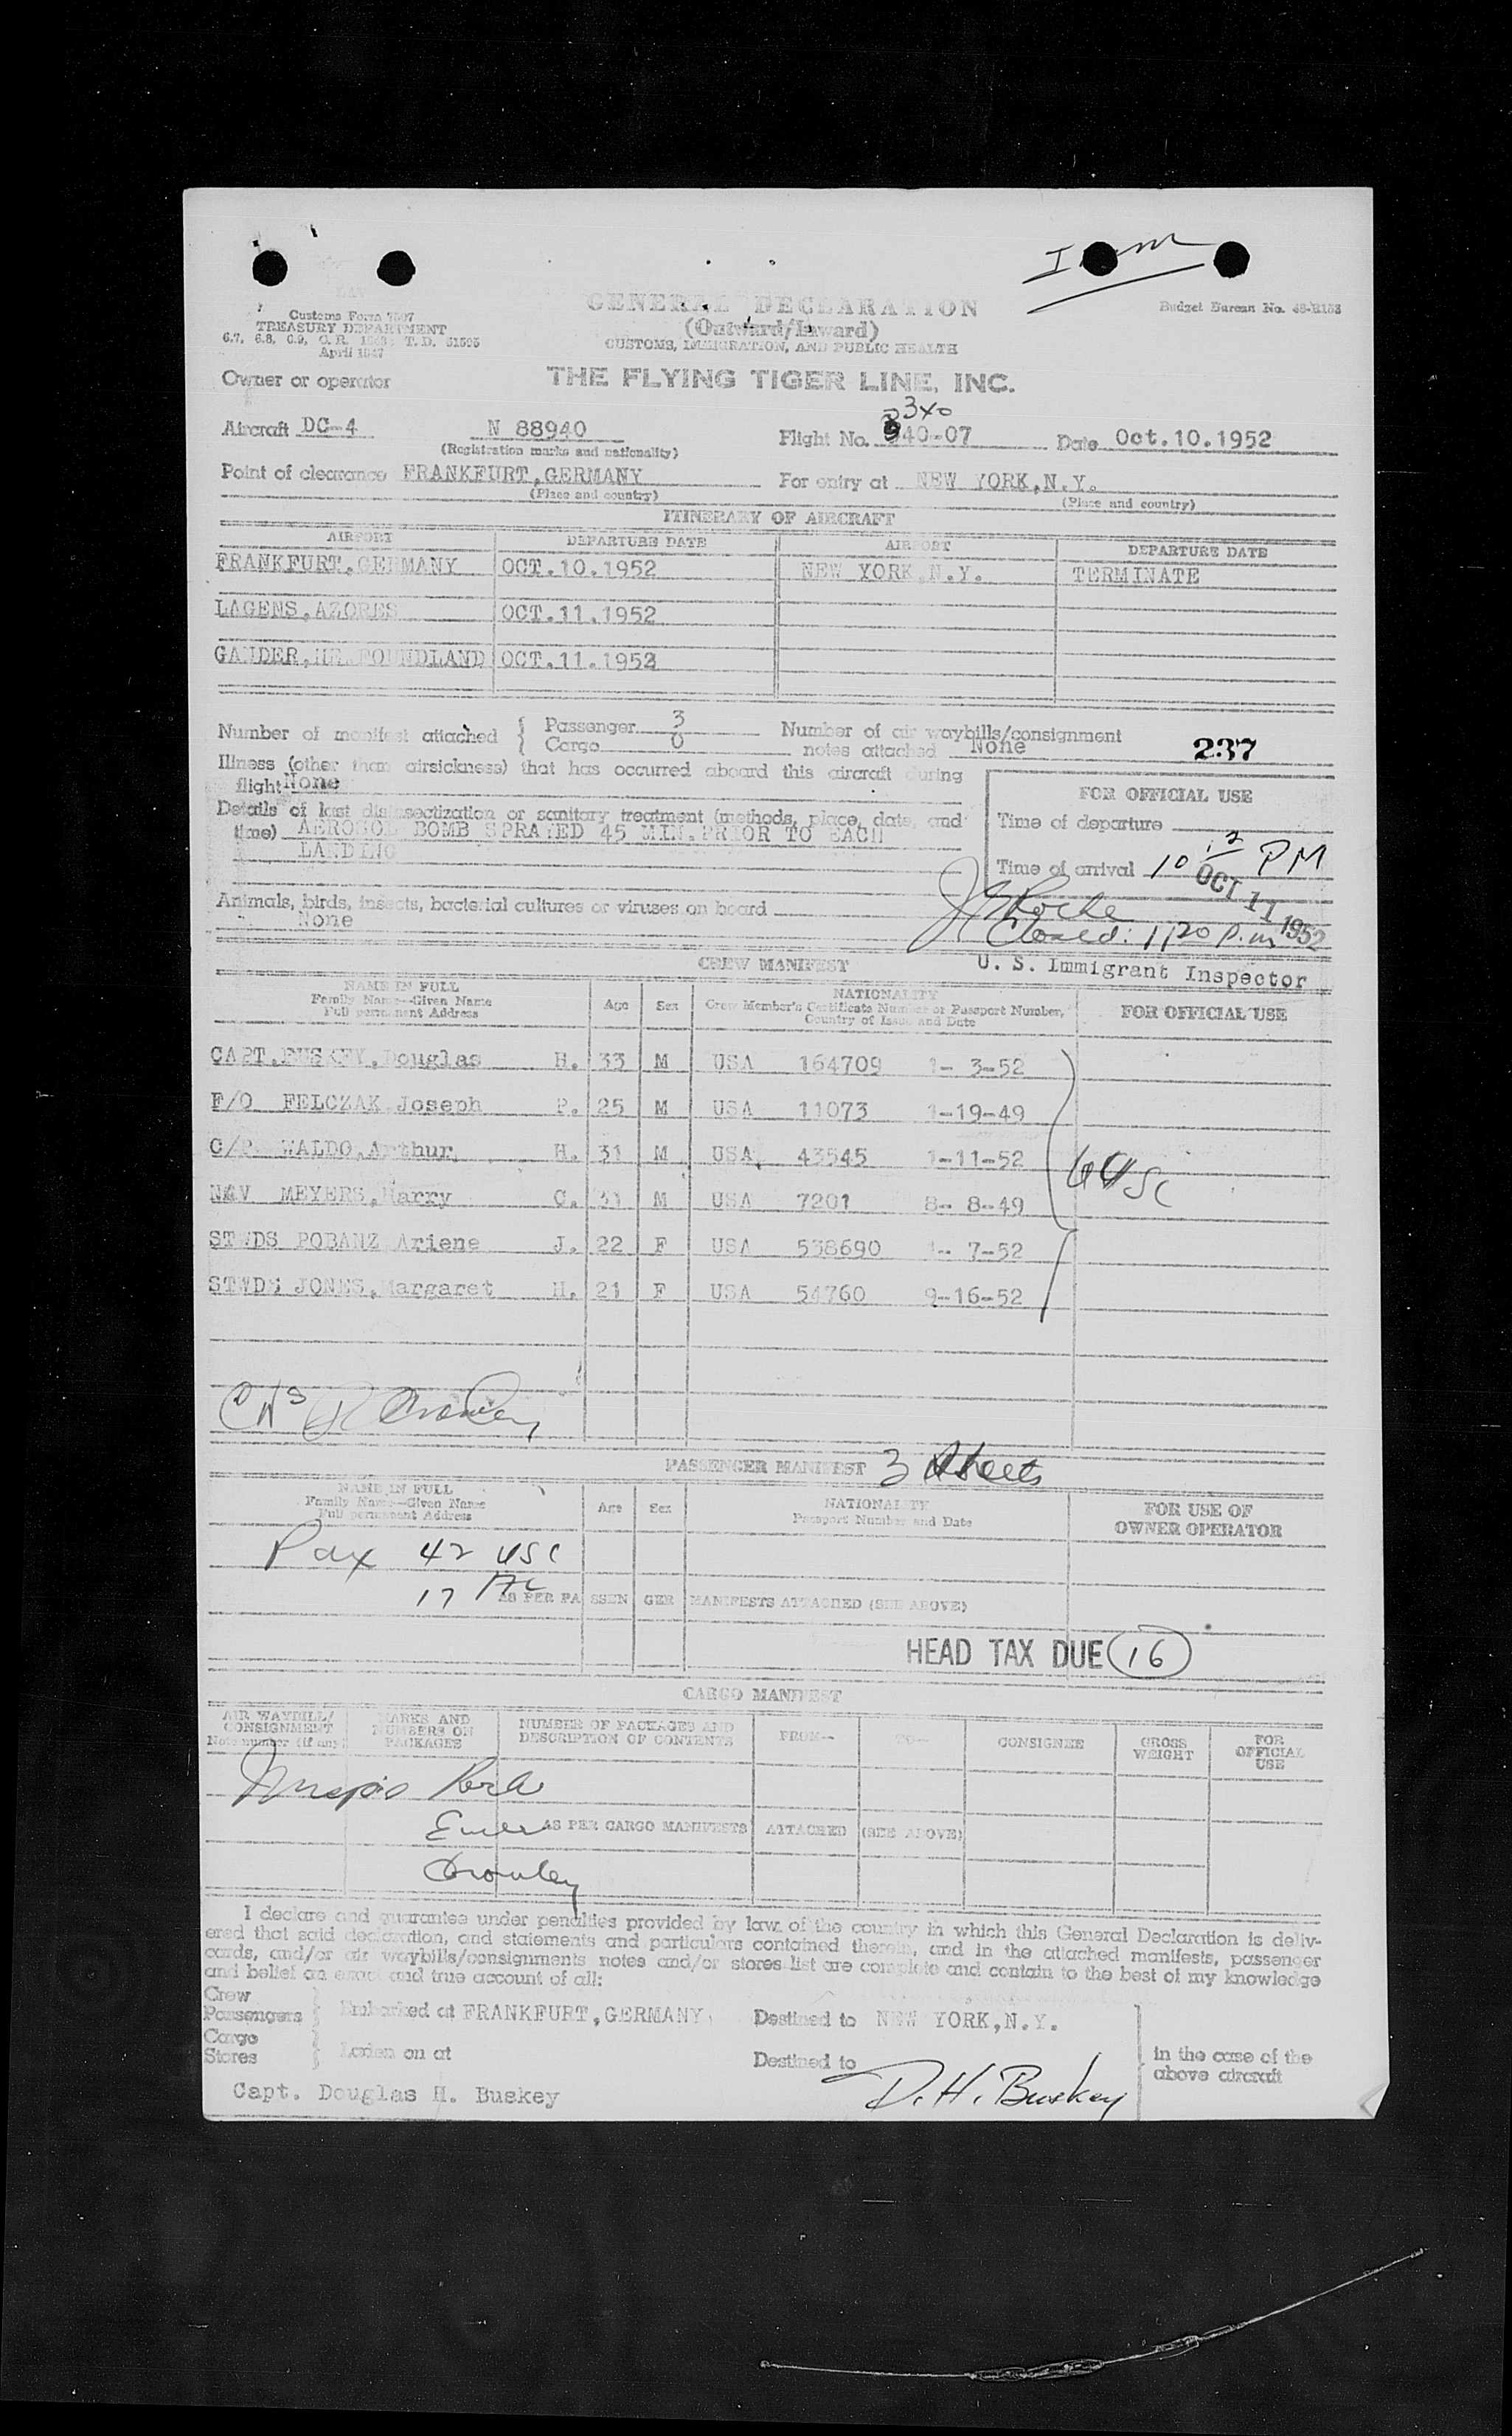 GENERAL DECLARATION
(Outward/Inward)
CUSTOMS, IMMIGRATION, AND PUBLIC HEALTH
Customs Form 7507
TREASURY DEPARTMENT
April 1947
Budget Bureau No.
Owner or operator THE FLYING TIGER LINE, INC.
340
Aircraft DC-4 N 88940 Flight No. 40-07 Date Oct.10.1952
(Registration marks and nationality)
Point of clearance FRANKFURT,GERMANY For entry at NEW YORK,N.Y.
(Place and country) (Place and country)
ITINERARY OF AIRCRAFT
AIRPORT DEPARTURE DATE AIRPORT DEPARTURE DATE
FRANKFURT,GERMANY OCT.10.1952 NEW YORK,N.Y. TERMINATE
LAGENS,AZORES OCT.11.1952
GANDER,NEWFOUNDLAND OCT.11.1952
Number of manifest attached Passenger 3 Number of air waybills/consignment
Cargo 0 notes attached None 237
Illness (other than airsickness) that has occurred aboard this aircraft during
flight None
FOR OFFICIAL USE
Details of last disinsectization or sanitary treatment (methods, place, date, and
time) AEROSOL BOMB SPRAYED 45 MIN.PRIOR TO EACH
LANDING
Time of departure
Time of arrival 10 12 PM
OCT 11 1952
Animals, birds, insects, bacterial cultures or viruses on board
None
Closed: 1120 p.m
U. S. Immigrant Inspector
CREW MANIFEST
NAME IN FULL
Family Name—Given Name
Full permanent Address
Age Sex
NATIONALITY
Crew Member's Certificate Number or Passport Number,
Country of Issue and Date
FOR OFFICIAL USE
CAPT.BUSKEY,Douglas H. 33 M USA 164709 1- 3-52
F/O FELCZAK Joseph P. 25 M USA 11073 1-19-49
C/P WALDO,Arthur H. 31 M USA 43545 1-11-52
NAV MEYERS,Harry C. 31 M USA 7201 8- 8-49
STWDS POBANZ Ariene J. 22 F USA 538690 1- 7-52
STWDS JONES,Margaret H. 21 F USA 54760 9-16-52
6 USC
PASSENGER MANIFEST 3 Sheets
NAME IN FULL
Family Name—Given Name
Full permanent Address
Age Sex
NATIONALITY
Passport Number and Date
FOR USE OF
OWNER OPERATOR
Pax 42 USC
17
AS PER PASSENGER MANIFESTS ATTACHED (SEE ABOVE)
HEAD TAX DUE 16
CARGO MANIFEST
AIR WAYBILL/
CONSIGNMENT
Note number (if any)
MARKS AND
NUMBERS ON
PACKAGES
NUMBER OF PACKAGES AND
DESCRIPTION OF CONTENTS
FROM— TO— CONSIGNEE
GROSS
WEIGHT
FOR
OFFICIAL
USE
AS PER CARGO MANIFESTS ATTACHED (SEE ABOVE)
Crowley
I declare and guarantee under penalties provided by law of the country in which this General Declaration is deliv-
ered that said declaration, and statements and particulars contained therein, and in the attached manifests, passenger
cards, and/or air waybills/consignments notes and/or stores list are complete and contain to the best of my knowledge
and belief an exact and true account of all:
Crew
Passengers Embarked at FRANKFURT,GERMANY Destined to NEW YORK,N.Y.
Cargo
Stores Laden on at Destined to
in the case of the
above aircraft
Capt. Douglas H. Buskey D.H. Buskey